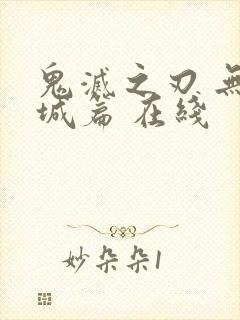 鬼滅之刃 無
城篇 在綫
妙朵朵1